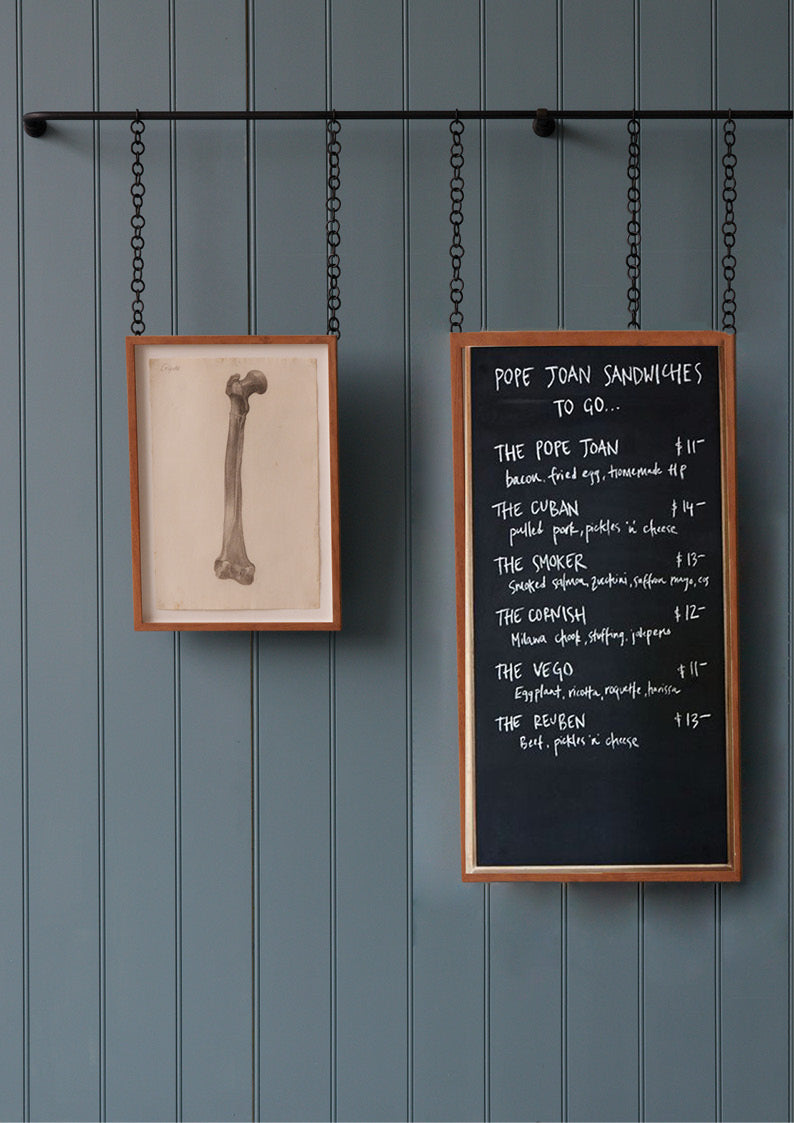 POPE JOAN SANDWICHES
TO GO...
THE POPE JOAN $11-
bacon, fried egg, homemade HP
THE CUBAN $14-
pulled pork, pickles 'n' cheese
THE SMOKER $13-
Smoked salmon, zucchini, saffron mayo, cos
THE CORNISH $12-
Milawa chook, stuffing, jalepeno
THE VEGO $11-
Eggplant, ricotta, roquette, harissa
THE REUBEN $13-
Beef, pickles 'n' cheese